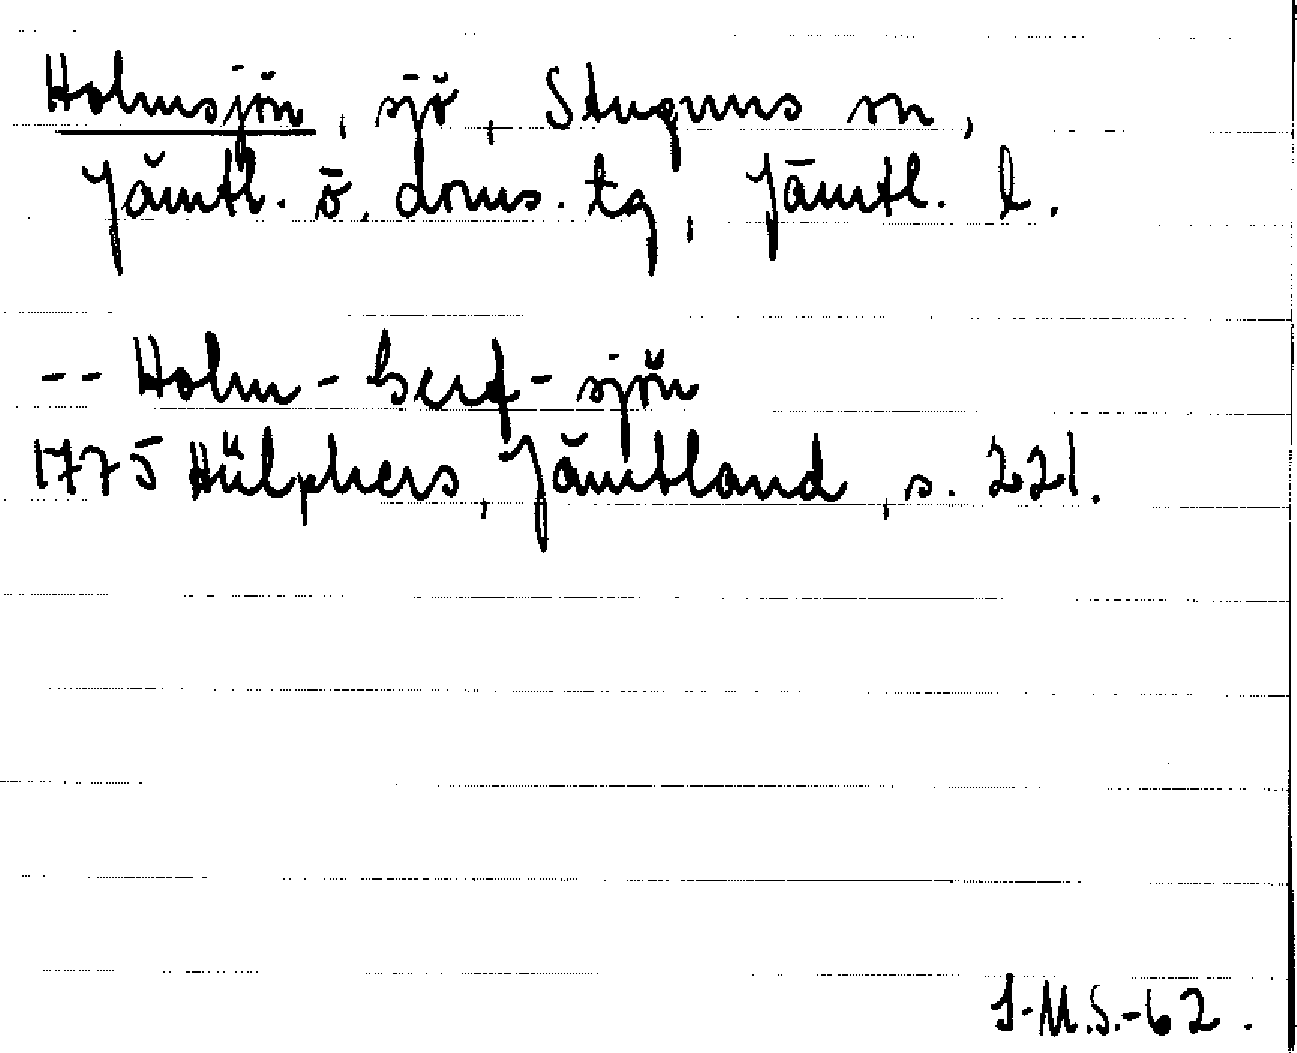 Holmsjön, sjö, Stuguns sn,
Jämtl. ö. doms. tg, Jämtl. l.
-- Holm-berg-sjön
1775 Hülphers, Jämtland, s. 221.
I-M.S.-62.